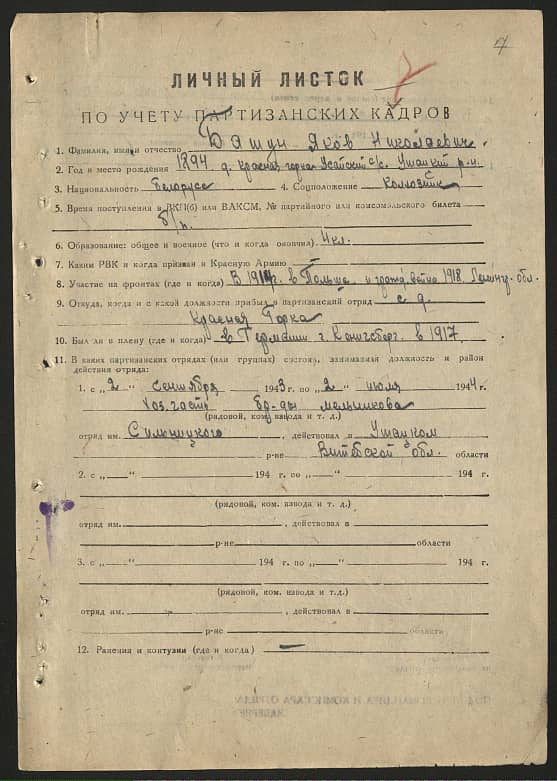 ЛИЧНЫЙ ЛИСТОК
ПО УЧЕТУ ПАРТИЗАНСКИХ КАДРОВ
1. Фамилия, имя и отчество Дяшун Яков Николаевич
2. Год и место рождения 1894 д. Красная горка Усайский с/с. Ушацкий р-н
3. Национальность Белорусс 4. Соцположение Колхозник
5. Время поступления в ВКП(б) или ВЛКСМ, № партийного или комсомольского билета
б/п.
6. Образование: общее и военное (что и когда окончил) 4 кл.
7. Каким РВК и когда призван в Красную Армию —
8. Участие на фронтах (где и когда) В 1914г. в Польше и гражд. война 1918. Ленингр. обл.
9. Откуда, когда и с какой должности прибыл в партизанский отряд с д.
Красная Горка
10. Был ли в плену (где и когда) в Германии г. Кенигсберг. в 1917.
11. В каких партизанских отрядах (или группах) состоял, занимаемая должность и район
действия отряда:
1. с „2“ сентября 1943 г. по „2“ июля 1944 г.
Хоз. часть бр-ды Мельникова
(рядовой, ком. взвода и т. д.)
отряд им. , действовал в Ушацком
р-не Витебской обл. области
2. с „—“ 194 г. по „—“ 194 г.
(рядовой, ком. взвода и т. д.)
отряд им. , действовал в
р-не области
3. с „—“ 194 г. по „—“ 194 г.
(рядовой, ком. взвода и т.д.)
отряд им. , действовал в
р-не области
12. Ранения и контузии (где и когда) —